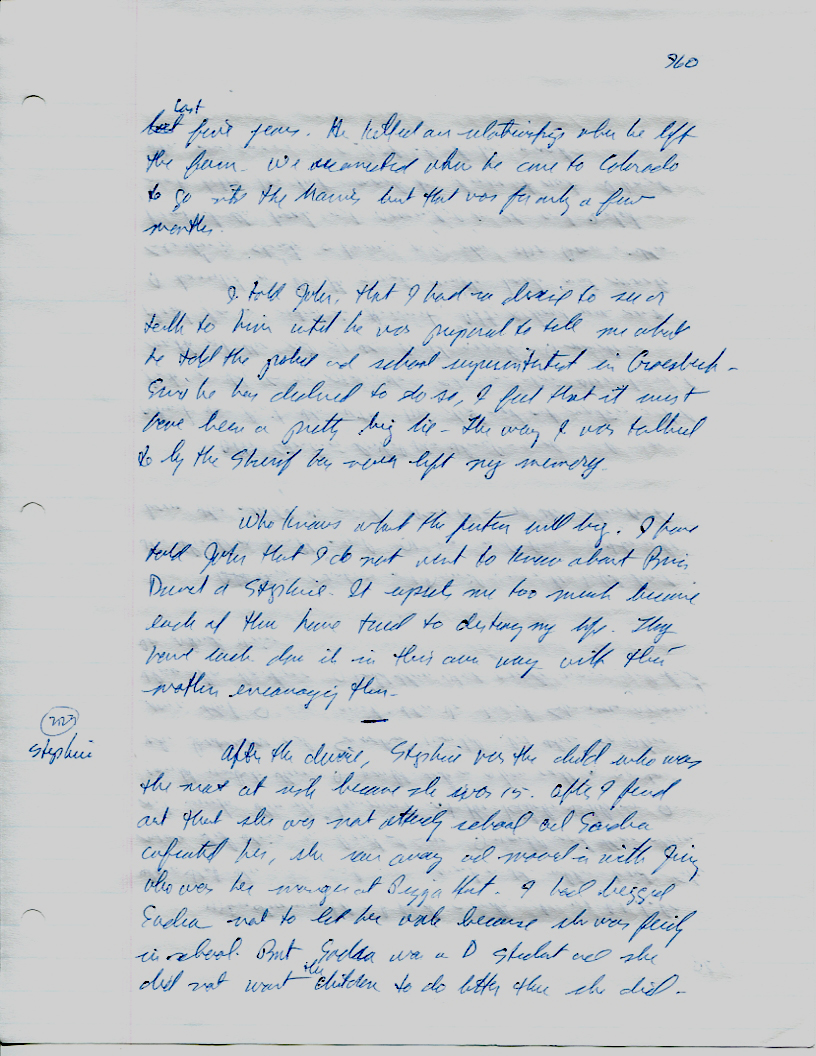 960
last
five years. He killed our relationship when he left
the farm. We reconnected when he came to Colorado
to go into the Marines but that was for only a few
months.
I told John, that I had no desire to see or
talk to him until he was prepared to tell me what
he told the police and school superintendent in Groesbeck -
Since he has declined to do so, I feel that it must
have been a pretty big lie - The way I was talked
to by the Sherif has never left my memory.
Who knows what the future will big. I have
told John that I do not want to know about
David or Stephine. It upsets me too much because
each of them have tried to destroy my life. They
have each done it in their own way with their
mother encouraging them -
Stephine
After the divorce, Stephine was the child who was
the most at risk because she was 15. After I found
out that she was not attending school and
confronted her, she ran away and moved in with
who was her manager at Pizza Hut. I had begged
not to let her work because she was failing
in school. But was a D student and she
did not want the children to do better than she did -